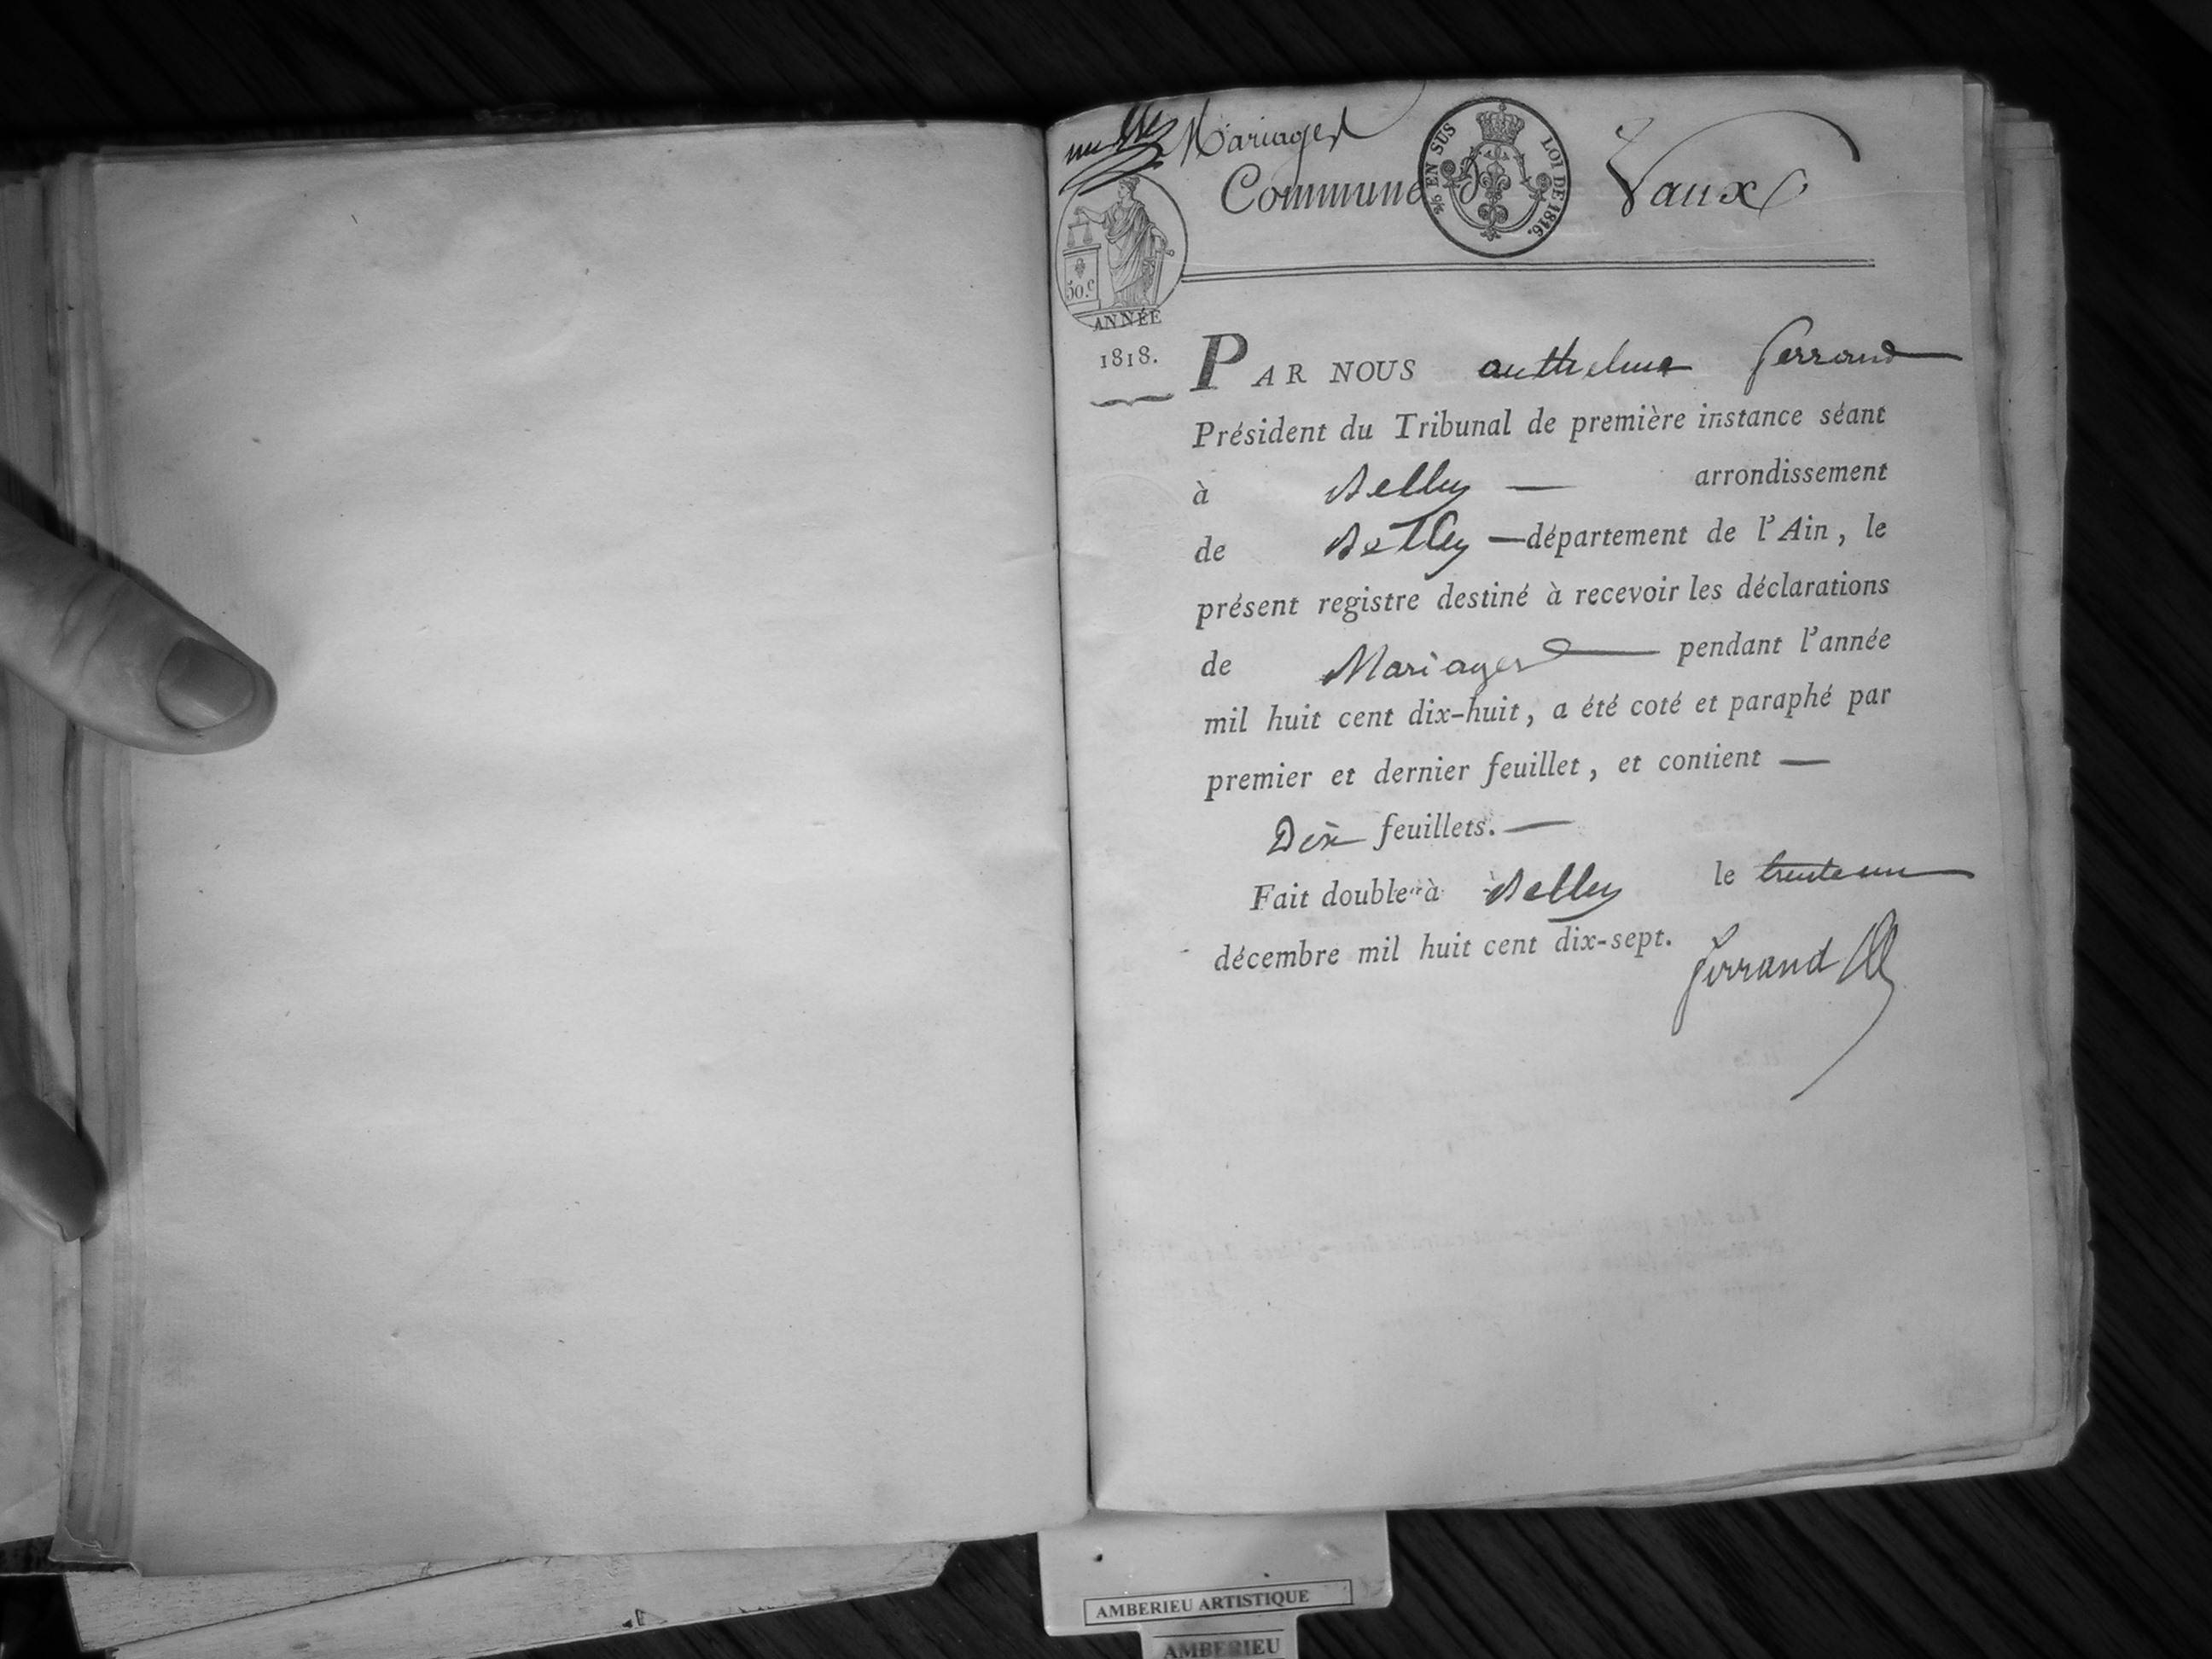 Mariages
Commune de Vaux
% EN SUS
LOI DE 1816.
50.c
ANNÉE
1818.
PAR NOUS anthelme ferrand
Président du Tribunal de première instance séant
à Belley — arrondissement
de Belley — département de l'Ain, le
présent registre destiné à recevoir les déclarations
de Mariages — pendant l'année
mil huit cent dix-huit, a été coté et paraphé par
premier et dernier feuillet, et contient —
Dix feuillets. —
Fait double à Belley le trente un
décembre mil huit cent dix-sept.
ferrand
AMBERIEU ARTISTIQUE
AMBERIEU